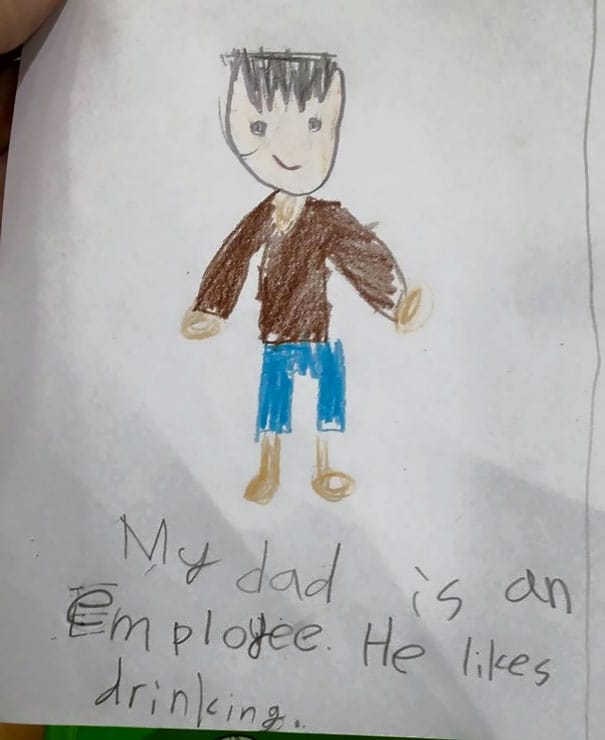 My dad is an
Employee. He likes
drinking.